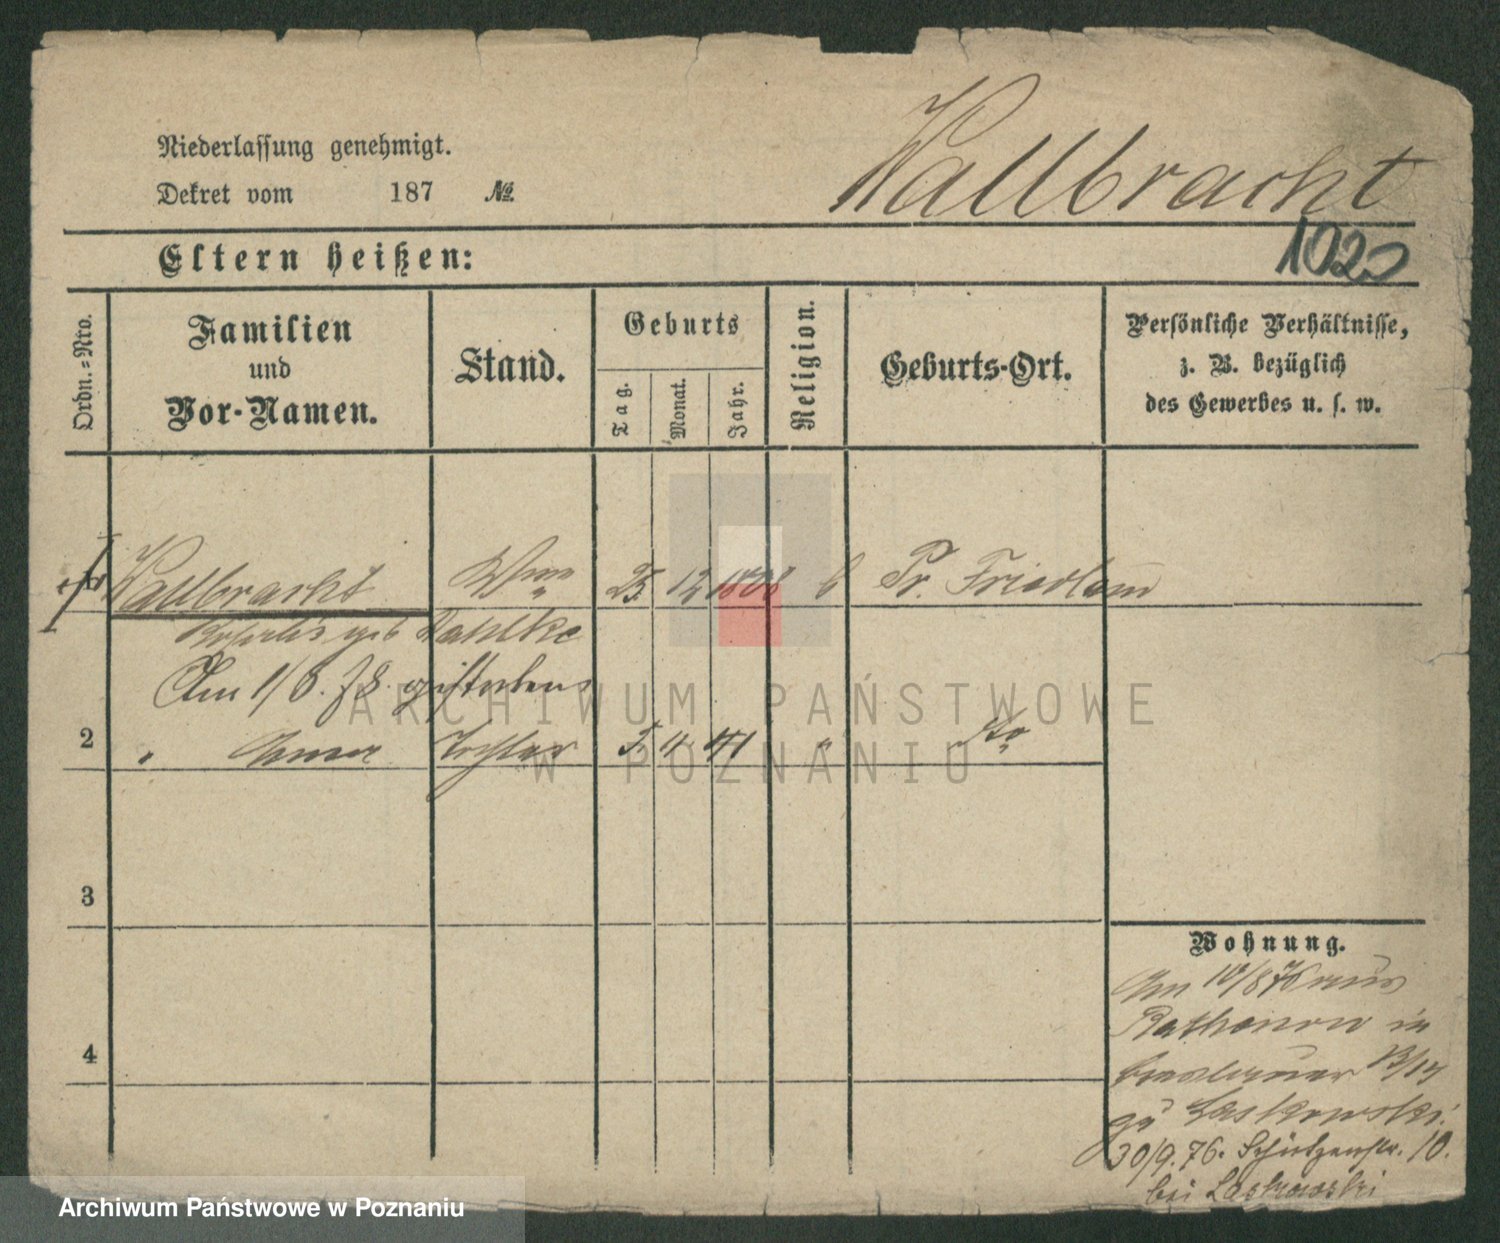 Niederlassung genehmigt.
Dekret vom 187 №
Wallbracht
1020
Eltern heißen:
Ordn.=Nro.
Familien
und
Vor-Namen.
Stand.
Geburts
Tag.
Monat.
Jahr.
Religion.
Geburts-Ort.
Persönliche Verhältnisse,
z. B. bezüglich
des Gewerbes u. s. w.
Wallbracht 25 12 1808 Pr. Friedland
geb Dahlke
Am 1/8. 78. gestorben
2 Tochter 5. 11. 41 " do
3
4
Wohnung.
Am 10/8 76 aus
Rathenow in
Breslauer 13/14
zu Laskowski.
30/9. 76. Schützenstr. 10.
bei Laskowski
ARCHIWUM PAŃSTWOWE
W POZNANIU
Archiwum Państwowe w Poznaniu